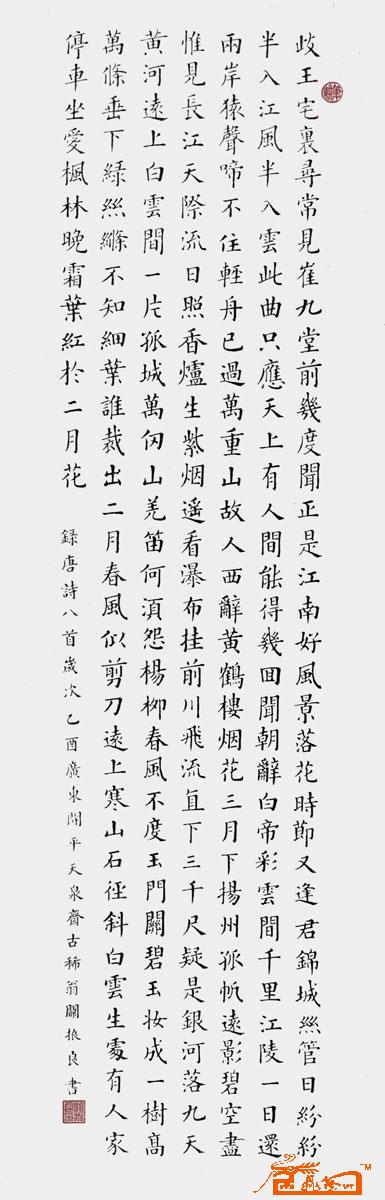 歧王宅裏尋常見崔九堂前幾度聞正是江南好風景落花時節又逢君錦城絲管日紛紛
半入江風半入雲此曲只應天上有人間能得幾回聞朝辭白帝彩雲間千里江陵一日還
兩岸猿聲啼不住輕舟已過萬重山故人西辭黃鶴樓烟花三月下揚州孤帆遠影碧空盡
惟見長江天際流日照香爐生紫烟遥看瀑布挂前川飛流直下三千尺疑是銀河落九天
黃河遠上白雲間一片孤城萬仞山羌笛何須怨楊柳春風不度玉門關碧玉妆成一樹高
萬條垂下綠絲縧不知細葉誰裁出二月春風似剪刀遠上寒山石徑斜白雲生處有人家
停車坐愛楓林晚霜葉紅於二月花
録唐詩八首歲次乙酉廣東開平天泉齋古稀翁關振良書